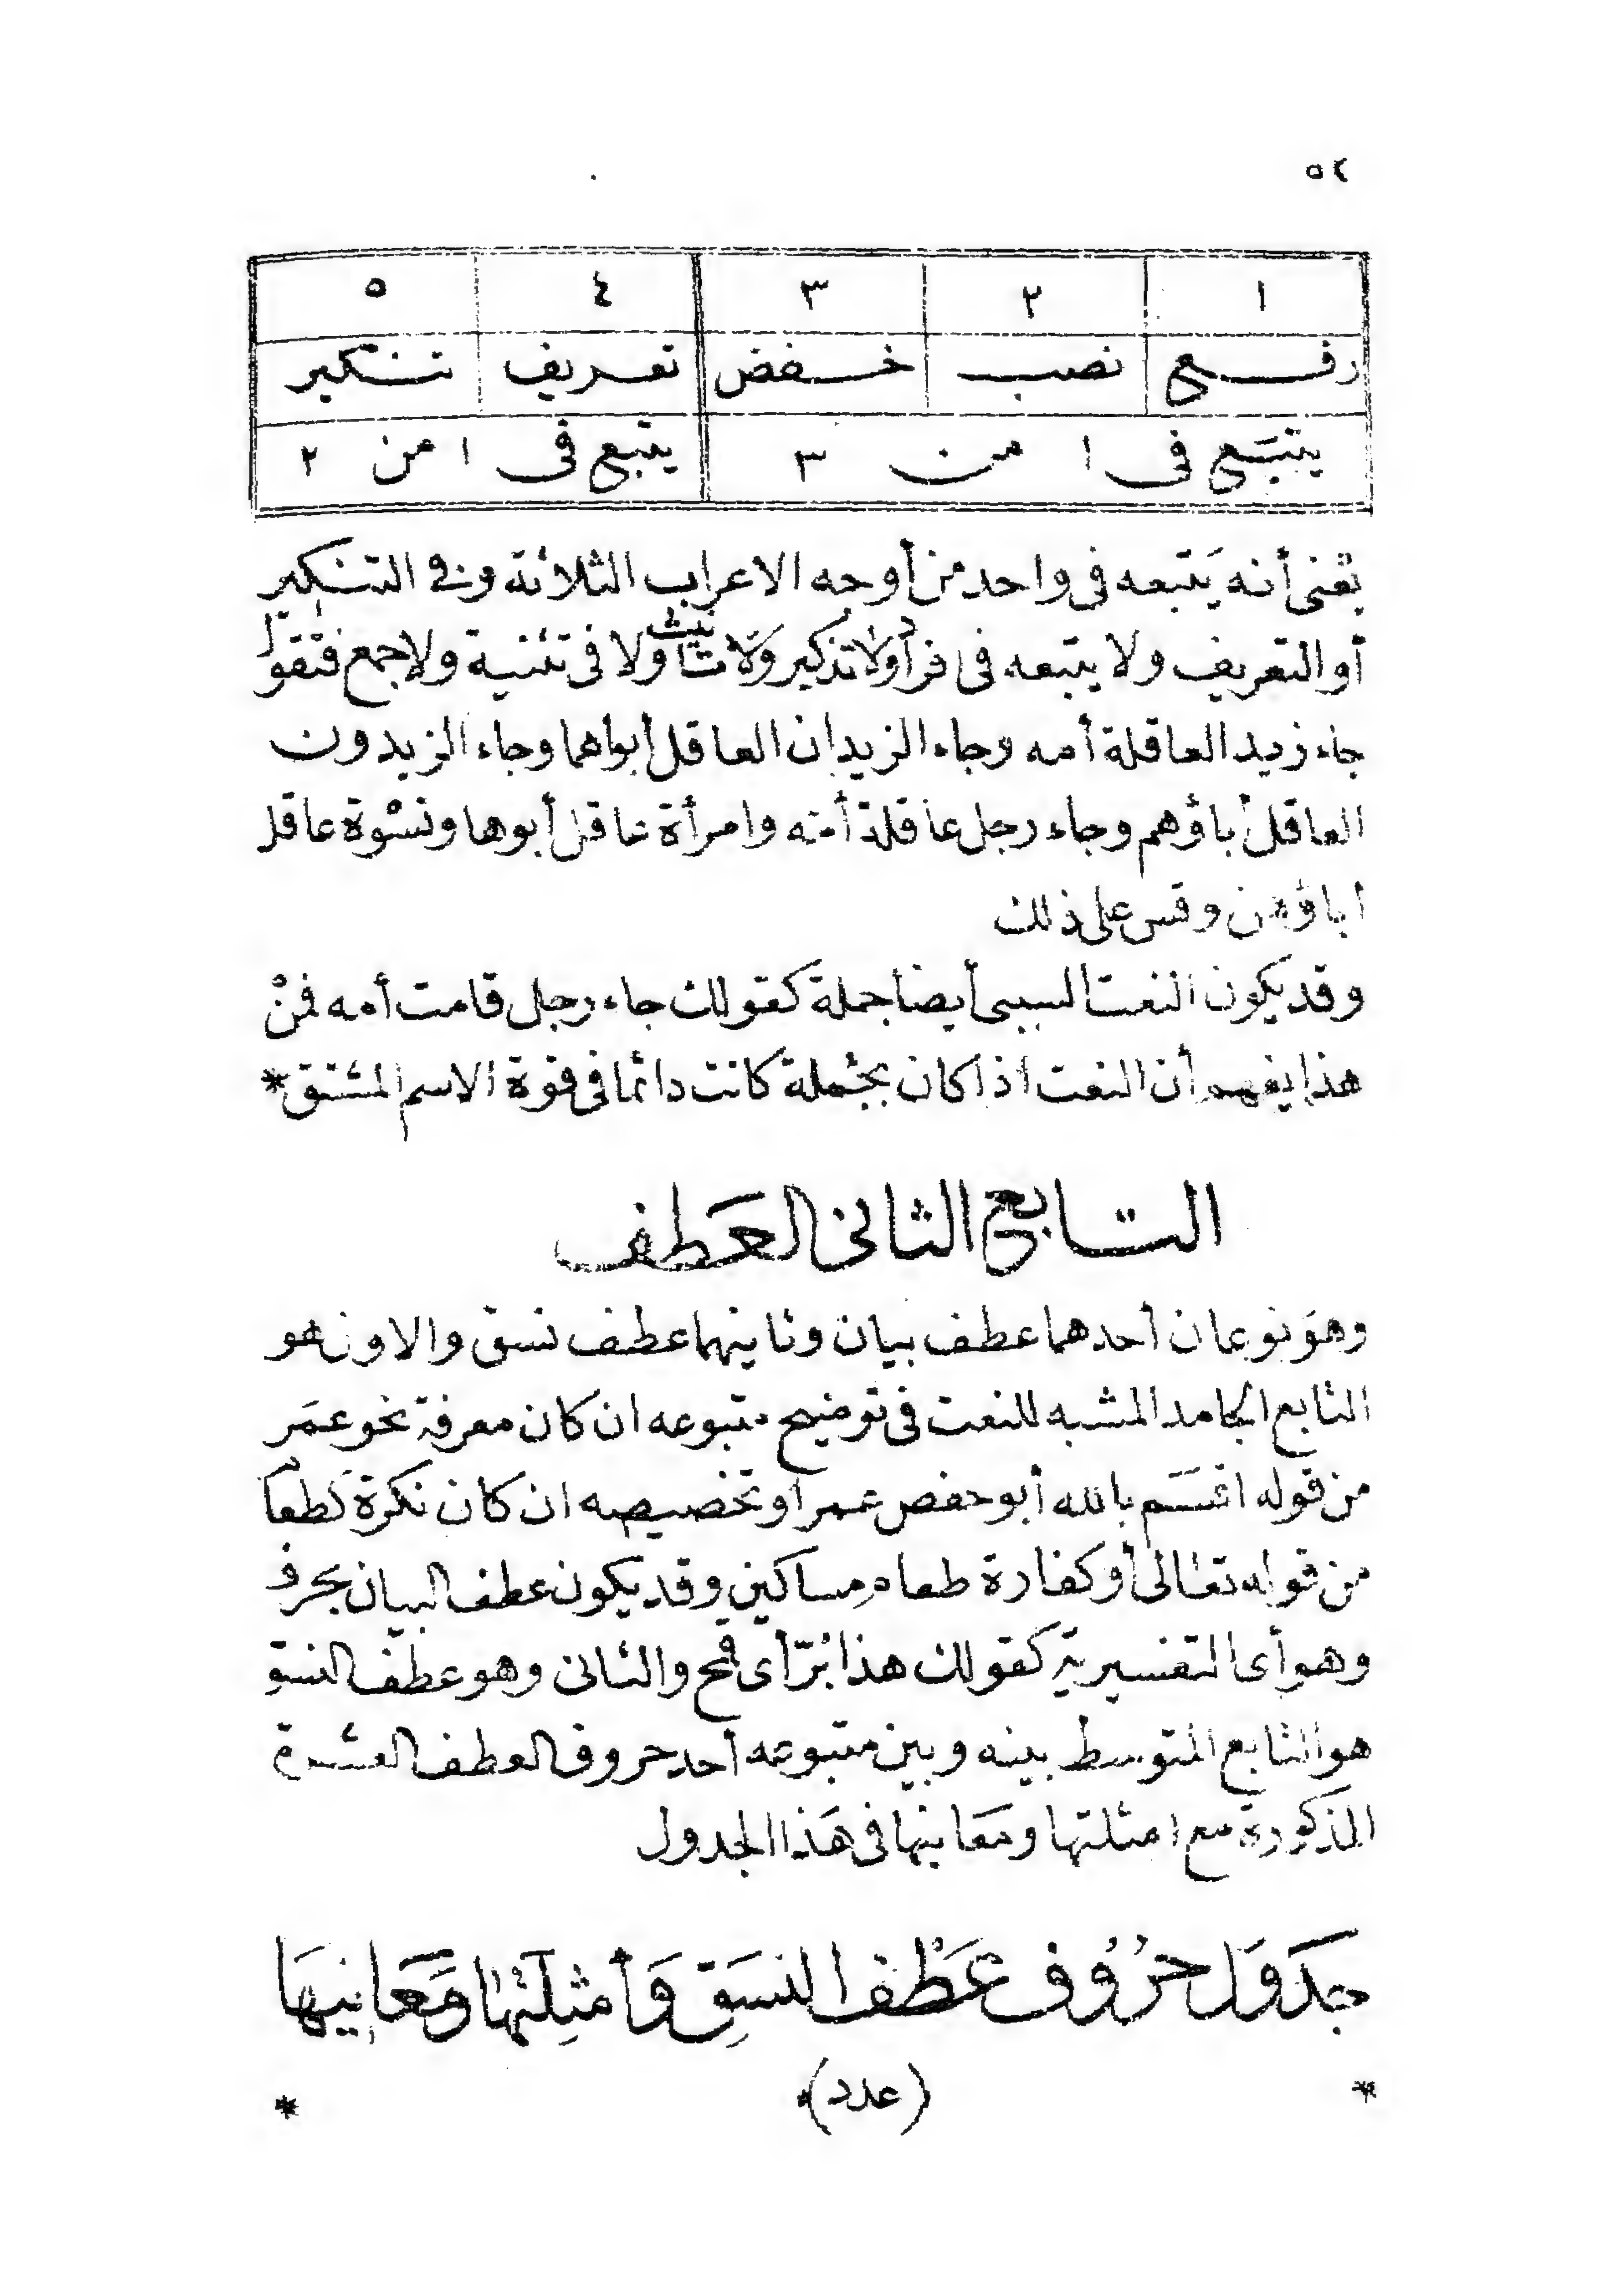 ٥٢
١ ٢ ٣ ٤ ٥
رفع نصب خفض تعريف تنكير
يتبع فى ١ من ٣ يتبع فى ١ من ٢
يعنى أنه يَتبعه فى واحد من أوجه الاعراب الثلاثة وفى التنكير
أو التعريف ولا يتبعه فى افراد ولا تذكير ولا تأنيث ولا فى تثنية ولا جمع فتقول
جاء زيد العاقلة أمه وجاء الزيدان العاقل أبواهما وجاء الزيدون
العاقل أباؤهم وجاء رجل عاقلة أمه وامرأة عاقل أبوها ونسْوة عاقل
اباؤهن وقس على ذلك
وقد يكون النعت السببى أيضا جملة كقولك جاء رجل قامت أمه فمنْ
هذا يفهم أن النعت اذا كان بجُملة كانت دائما فى قوة الاسم المشتق *
التابع الثانى العَطف
وهوَ نوعان أحدهما عطف بيان وثانيهما عطف نسق والاول هو
التابع الجامد المشبه للنعت فى توضيح متبوعه ان كان معرفة نحو عمَر
من قوله اقسَم بالله أبو حفص عمر أو تخصيصه ان كان نكرة كطعام
من قوله تعالى أو كفارة طعام مِساكين وقد يكون عطف البيان بحرف
وهو أى التفسيرية كقولك هذا بُرّ أى قمح والثانى وهو عطف النسق
هو التابع المتوسط بينه وبين متبوعه أحد حروف العطف العشرة
المذكورة مع امثلتها ومَعانيها فى هَذا الجدول
جَدوَل حرُوف عَطْف النسَقِ وَأمثِلَتهَا ومَعَانِيهَا
* (عدد) *